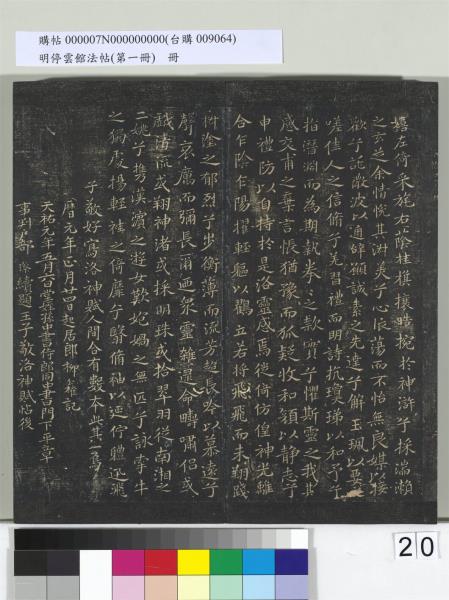 購帖 000007N000000000(台購 009064)
明停雲館法帖(第一冊) 冊
嬉左倚采旄右蔭桂旗攘皓捥於神滸兮採湍瀨
之玄芝余情悅其淑美兮心振蕩而不怡無良媒以接
歡兮託微波以通辭願誠素之先達兮解玉珮以要之
嗟佳人之信脩兮羌習禮而明詩抗瓊珶以和予兮
指潛淵而為期執拳拳之款實兮懼斯靈之我欺
感交甫之棄言悵猶豫而狐疑收和顏以靜志兮
申禮防以自持於是洛靈感焉徙倚仿偟神光離
合乍陰乍陽擢輕軀以鶴立若將飛而未翔踐
椒塗之郁烈兮步衡薄而流芳超長吟以慕遠兮
聲哀厲而彌長爾迺眾靈雜遝命疇嘯侶或
戲清流或翔神渚或採明珠或拾翠羽從南湘之
二姚兮攜漢濱之遊女歎炮媧之無匹兮詠牽牛
之獨處揚輕袿之倚靡兮翳脩袖以延佇體迅飛
子敬好寫洛神賦人間合有數本此其一焉寶
曆元年正月廿四日起居郎柳 記
天祐元年五月
事 續題王子敬洛神賦帖後
20